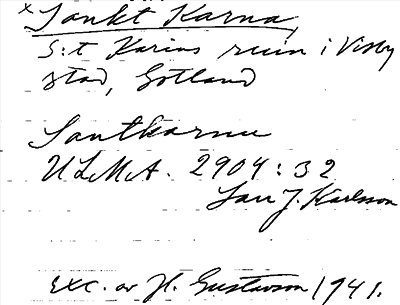 x Sankt Karna,
S:t Karins ruin i Visby
stad, Gotland
Santkarnu
ULMA. 2904:32
Lars J. Karlsson
Exc. av H. Gustavson 1941.